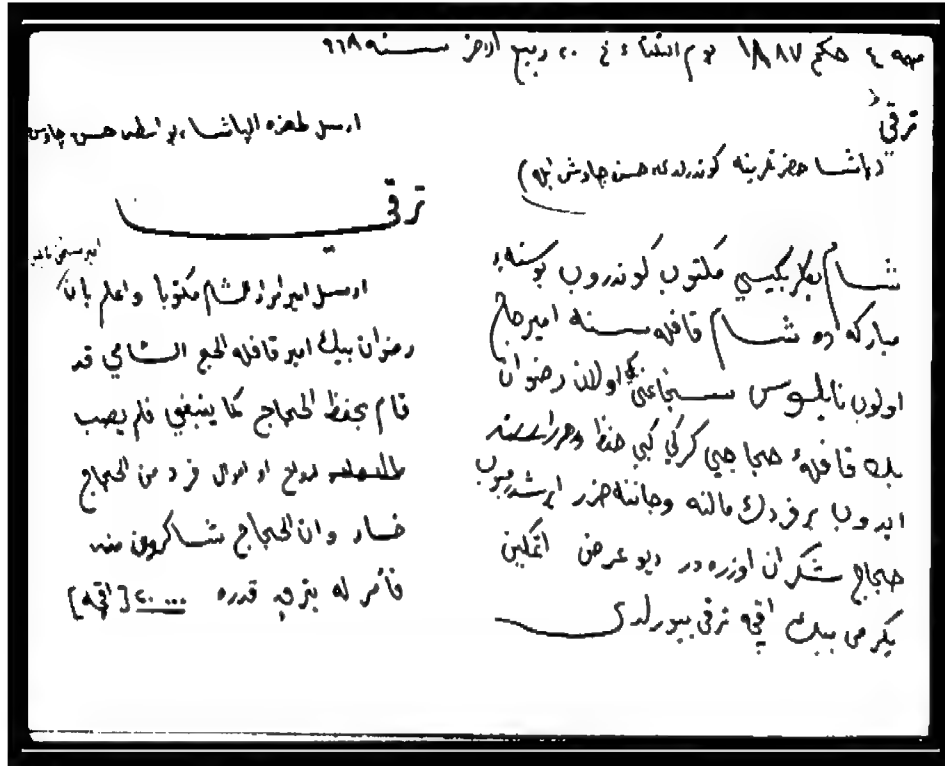 مهمه ٤ حكم ١٨٨٧ يوم الثلثاء في ٢٠ ربيع الاخر سـنه ٩٦٨
ترقي
(پاشا حضرتلرينه كوندرلدى حسن چاوش ايله)
شام بكلربكيسي مكتوب كوندروب بوسنهء
مباركه ده شام قافله سنه امير حاج
اولوب نابلوس سنجاغى بكي اولان رضوان
بك قافلهء حجاجي كركي كبي حفظ وحراست
ايدوب بر فردك مالنه وجاننه ضرر ايرشدرميوب
حجاج شكران اوزره در ديو عرض اتمكين
يكرمى بيك اقچه ترقى بيورلدى
ارسل لحضرة الپاشا بواسطه حسن چاوش
ترقي
ارسل امير امراء الشام مكتوبا واعلم بان
رضوان بيك امير قافله الحج الشامي قد
قام بحفظ الحجاج كما ينبغي فلم يصب
روح او اموال فرد من الحجاج
خسار وان الحجاج شاكرون منه
فأمر له بترقي قدره ٢٠٠٠٠ [اقچه]